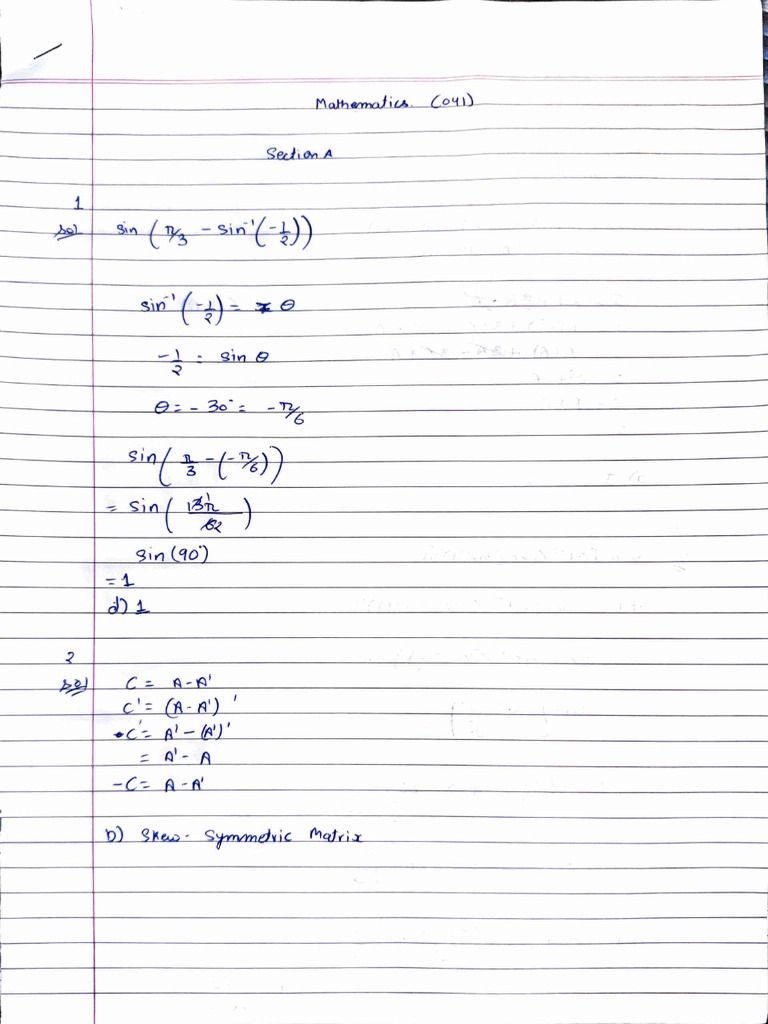 Mathematics. (041)
Section A
1
sol sin (π/3 - sin⁻¹(-1/2))
sin⁻¹(-1/2) = θ
-1/2 = sin θ
θ = - 30° = -π/6
sin(π/3 - (-π/6))
= sin (
sin (90°)
= 1
d) 1
2
sol C = A - A'
C' = (A - A')'
C' = A' - (A')'
= A' - A
-C = A - A'
b) Skew - Symmetric Matrix